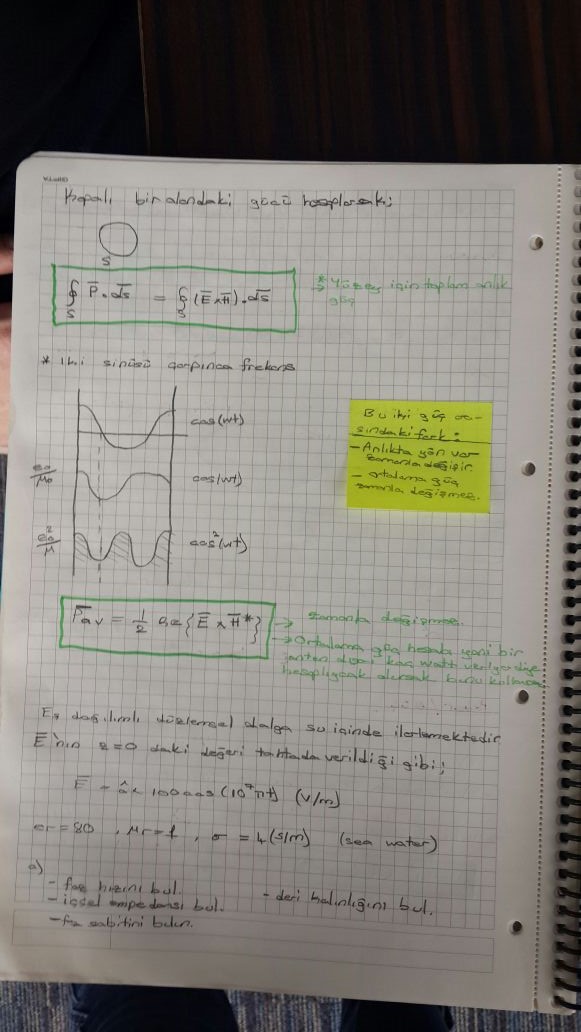 Kapalı bir alandaki gücü hesaplarsak;
S
∮S P̅ . d̅s̅ = ∮S (E̅ x H̅) . d̅s̅
* → Yüzey için toplam anlık güç
* İki sinüsü çarpınca frekans
cos(wt)
e0/μ0
cos(wt)
e0²/μ
cos²(wt)
Bu iki güç ara-
sındaki fark:
- Anlıkta yön var
zamanla değişir.
- ortalama güç
zamanla değişmez.
P̅av = 1/2 Re{E̅ x H̅*}
→ zamanla değişmez.
→ Ortalama güç hesabı yani bir
kaç watt
hesaplıyacak olursak bunu
Ex dağılımlı düzlemsel dalga su içinde ilerlemektedir.
E̅'nin z=0 daki değeri tahtada verildiği gibi;
E̅ = âx 100 cos(10⁷πt) (V/m)
εr = 80 , μr = 1 , σ = 4(S/m) (sea water)
a)
- faz hızını bul.
- deri kalınlığını bul.
- içsel empedansı bul.
- faz sabitini bulun.